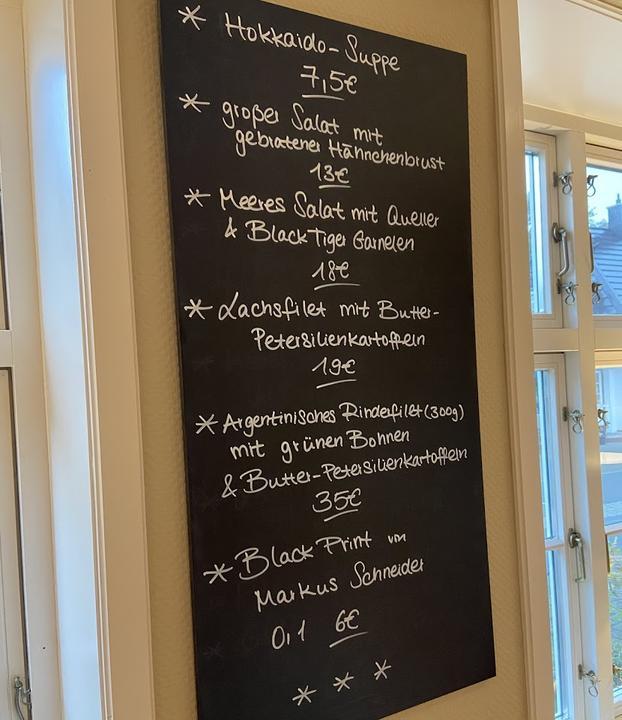 * Hokkaido-Suppe
7,5€
* großer Salat mit
gebratener Hähnchenbrust
13€
* Meeres Salat mit Queller
& Black Tiger Garnelen
18€
* Lachsfilet mit Butter-
Petersilienkartoffeln
19€
* Argentinisches Rinderfilet (300g)
mit grünen Bohnen
& Butter-Petersilienkartoffeln
35€
* Black Print von
Markus Schneider
0,1 6€
* * *